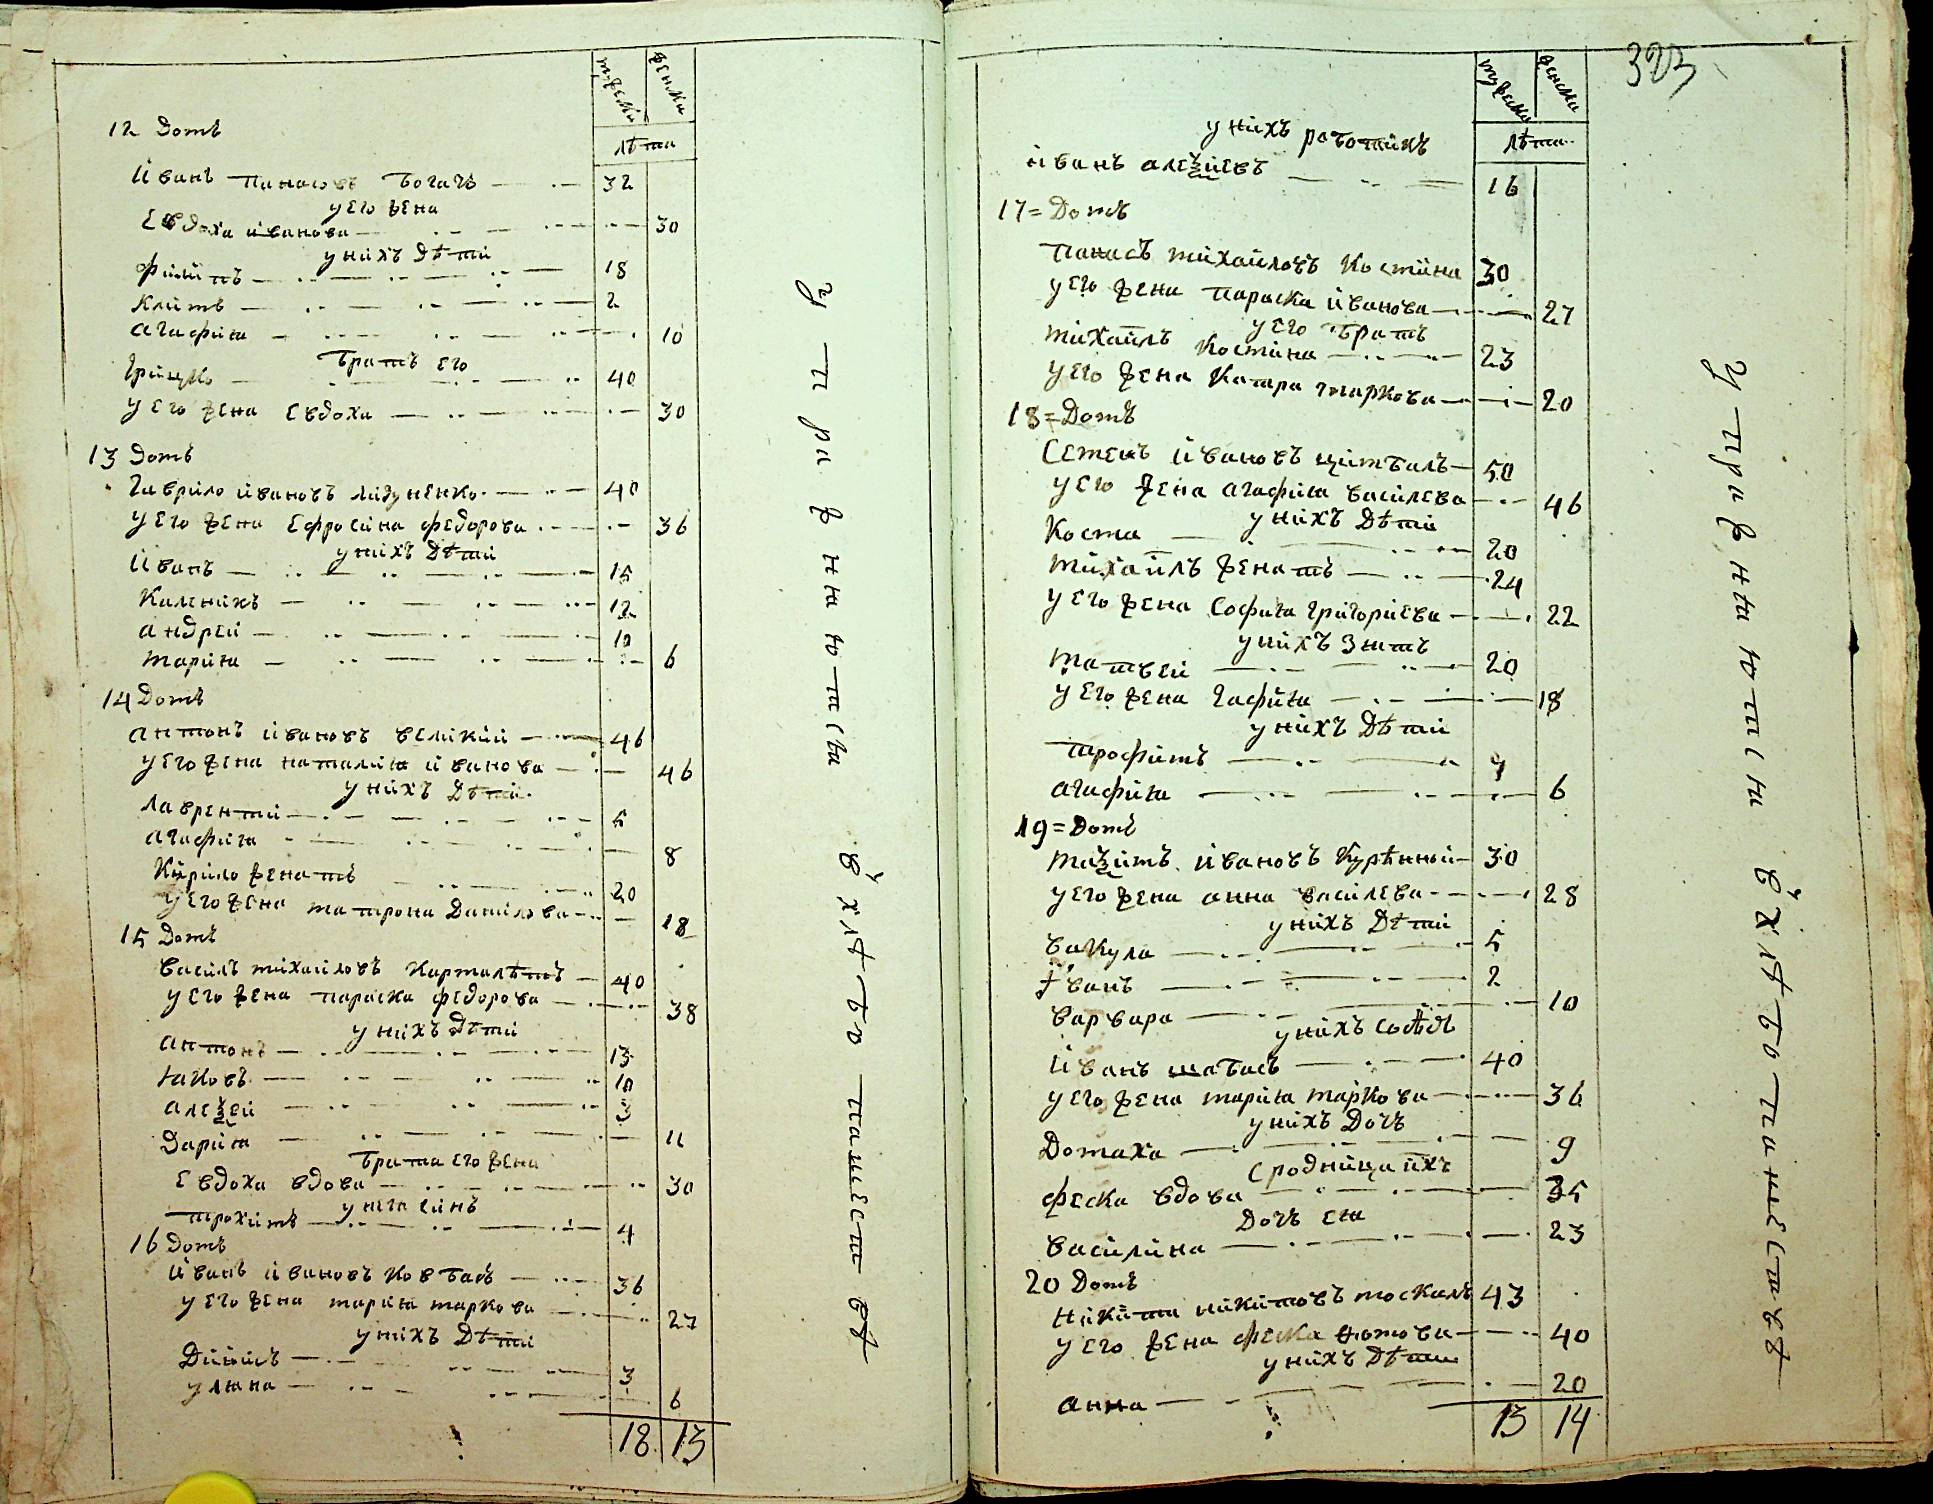 мужеска женска
лѣта
12 Домъ
Иванъ Панасовъ Богачъ 32
у его жена
Евдоха Иванова 30
у нихъ дѣти
Филипъ 18
Климъ 2
Агафиа 10
братъ его
Грицко 40
у его жена Евдоха 30
13 Домъ
Гаврило Ивановъ 40
у его жена Ефросина Федорова 36
у нихъ дѣти
Иванъ 15
Каленикъ 12
Андрей 10
Мариа 6
14 Домъ
Антонъ Ивановъ Великий 46
у его жена Наталиа Иванова 46
у нихъ дѣти
Лаврентий 5
Агафиа 8
Кирило женатъ 20
у его жена Матрона Данилова 18
15 Домъ
Василъ Михайловъ 40
у его жена Параска Федорова 38
у нихъ дѣти
Антонъ 13
Яковъ 10
Алеѯей 3
Дариа 11
брата его жена
Евдоха вдова 30
у неи синъ
Трохимъ 4
16 Домъ
Иванъ Ивановъ Ковбасъ 36
у его жена Мариа Маркова 27
у нихъ дѣти
3
Улиана 6
18 13
у пражняются
в хлѣбо пашест вѣ
323
мужеска женска
лѣта
у нихъ работникъ
Иванъ Алеѯиевъ 16
17 = Домъ
Панасъ Михайловъ Костина 30
у его жена Параска Иванова 27
у его братъ
Михаилъ Костина 23
у его жена Катра Маркова 20
18 = Домъ
Семенъ Ивановъ Цимбалъ 50
у его жена Агафиа Василева 46
у нихъ дѣти
Коста 20
Михаилъ женатъ 24
у его жена Софиа Григориева 22
у нихъ зять
Матвей 20
у его жена Гафиа 18
у нихъ дѣти
Трофимъ 4
Агафиа 6
19 = Домъ
Маѯимъ Ивановъ Курѣнный 30
у его жена Анна Василева 28
у нихъ дѣти
Вакула 5
Иванъ 2
Варвара 10
у нихъ сосѣдъ
Иванъ Шабасъ 40
у его жена Мариа Маркова 36
у нихъ дочъ
Домаха 9
сродница ихъ
Феска вдова 35
дочъ ея
Василина 23
20 Домъ
Никита Никитовъ Москалъ 43
у его жена Феска 40
у нихъ дѣти
Анна 20
13 14
у пражняются
в хлѣбо пашествѣ